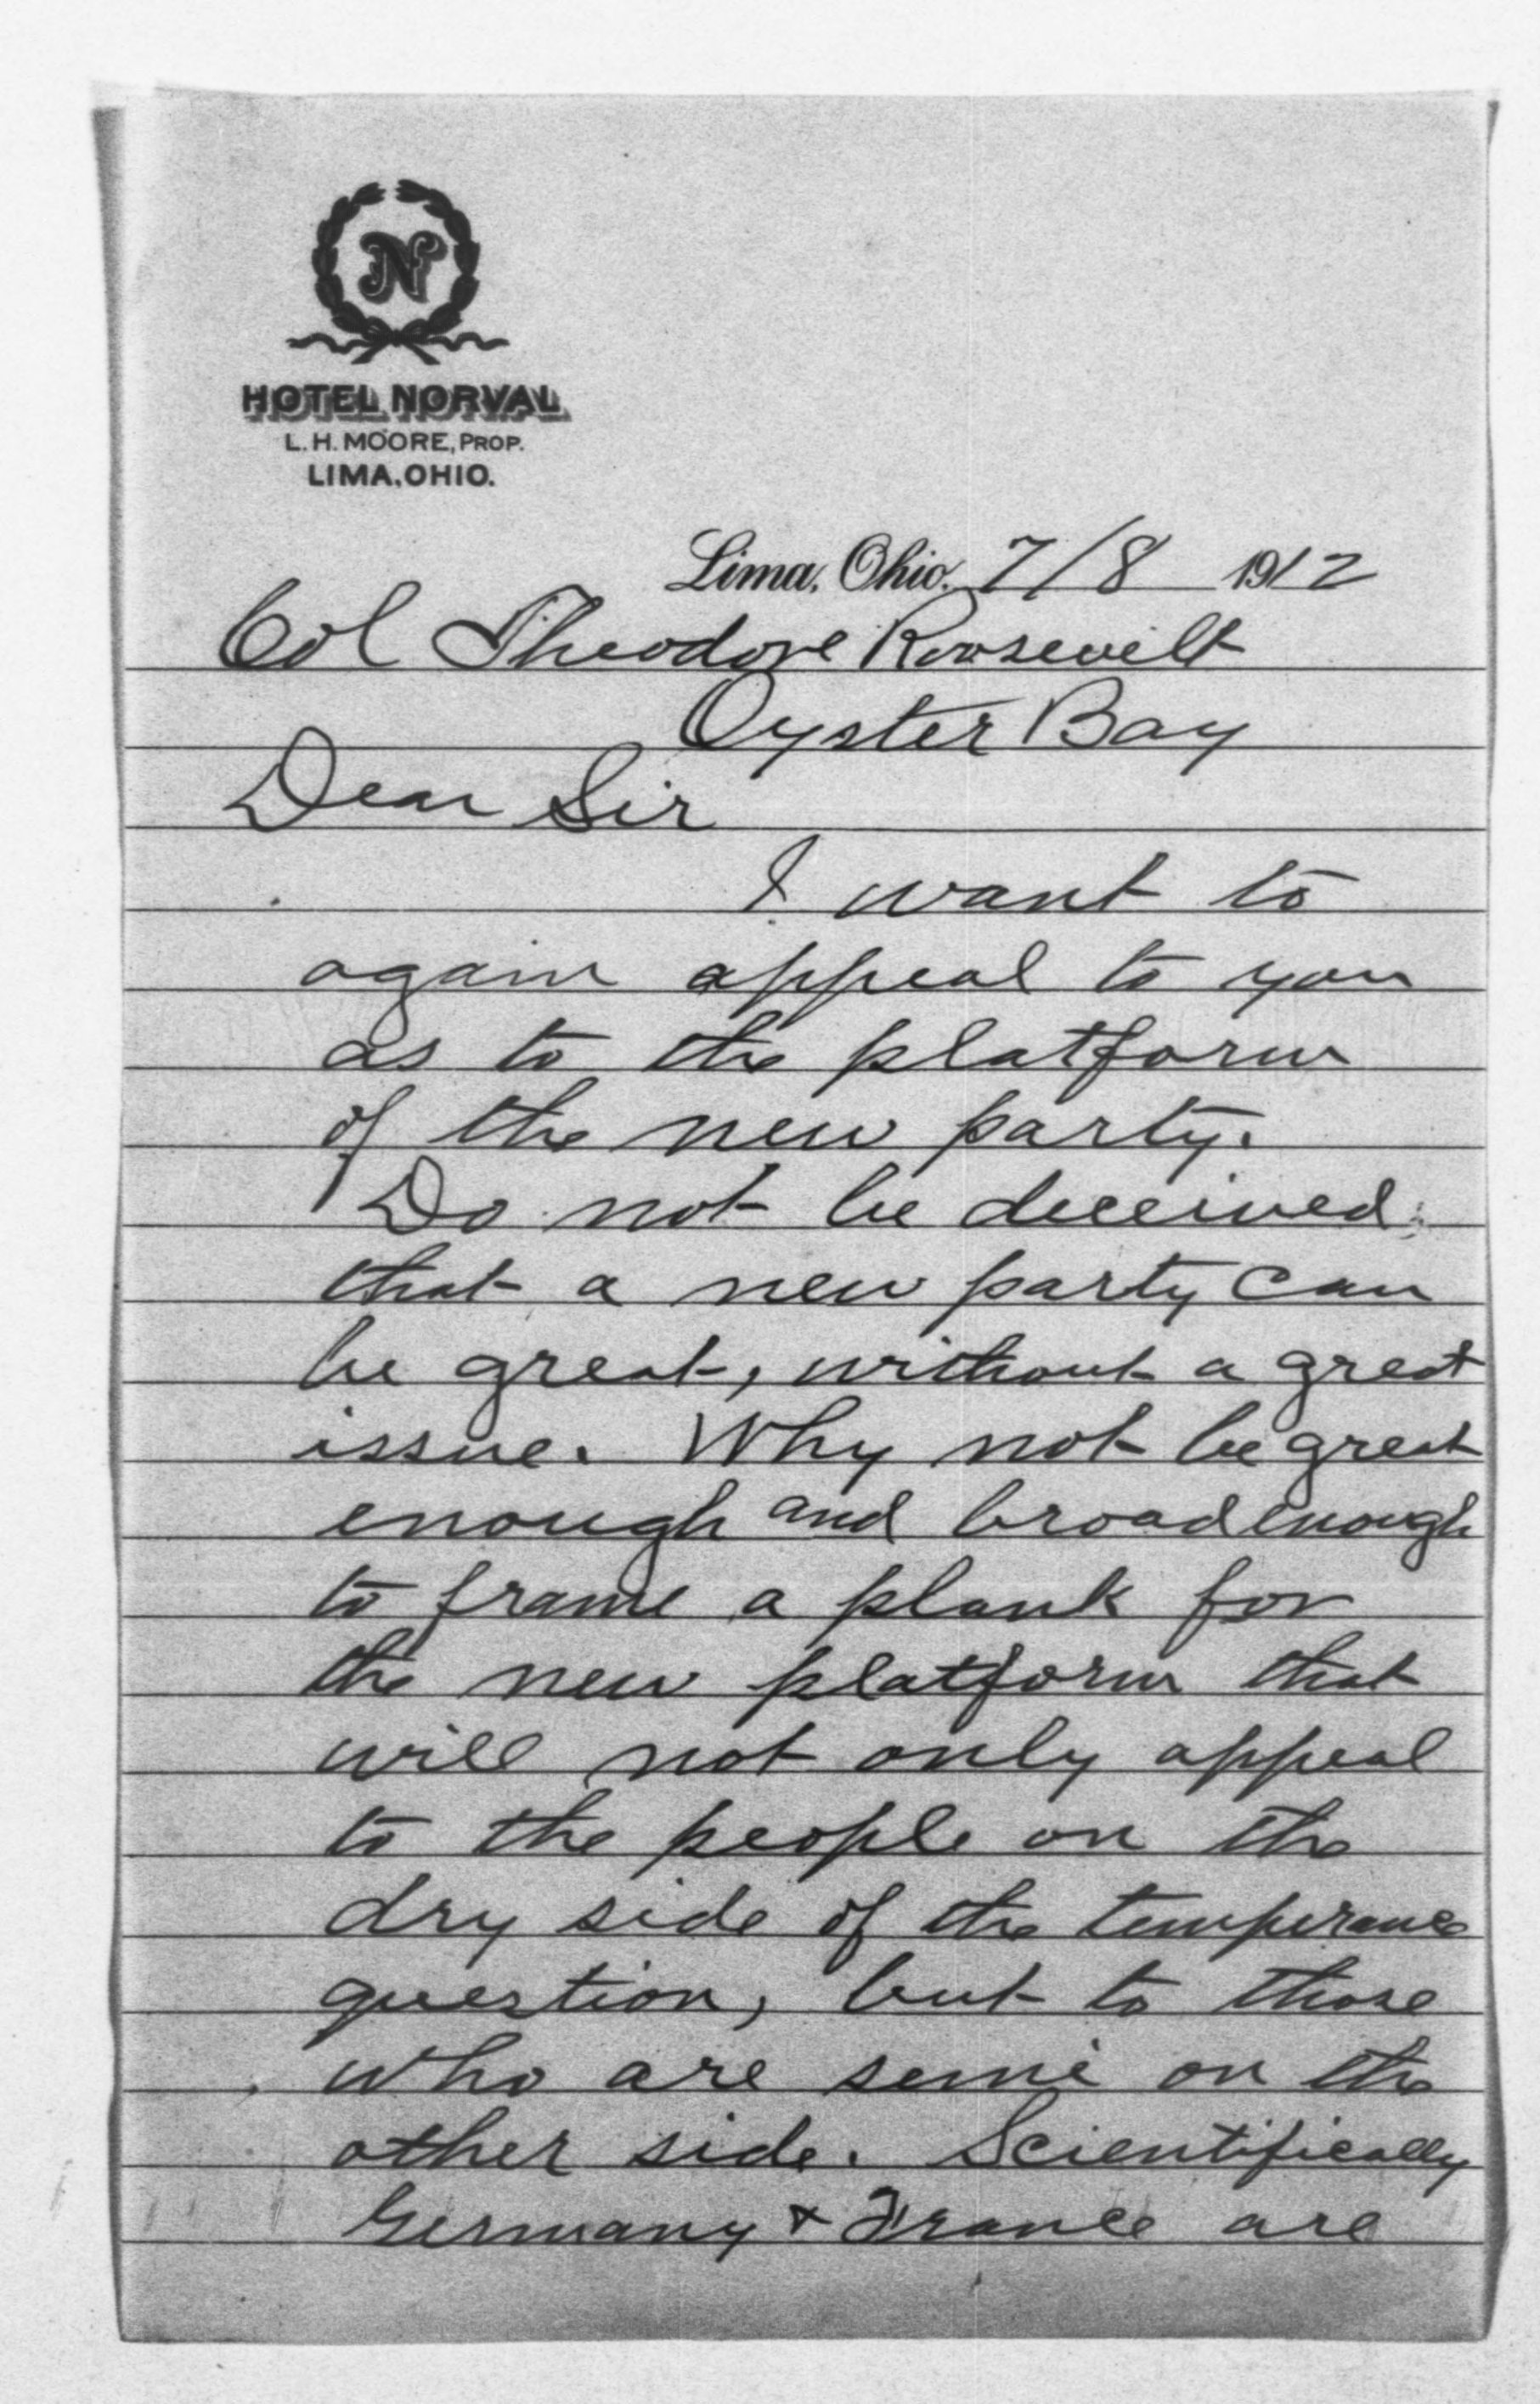 N
HOTEL NORVAL
L. H. MOORE, PROP.
LIMA, OHIO.
Lima, Ohio. 7/8 1912
Col Theodore Roosevelt
Oyster Bay
Dear Sir
I want to
again appeal to you
as to the platform
of the new party.
Do not be deceived
that a new party can
be great, without a great
issue. Why not be great
enough and broad enough
to frame a plank for
the new platform that
will not only appeal
to the people on the
dry side of the temperance
question, but to those
who are semi on the
other side. Scientifically
Germany & France are